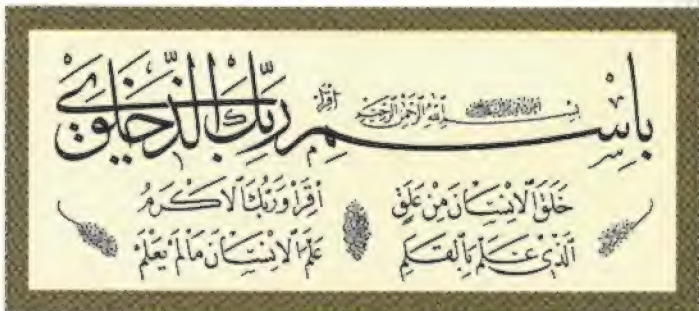 بِسْمِ اللهِ الرَّحْمٰنِ الرَّحِيمِ
اِقْرَأْ
بِاسْمِ رَبِّكَ الَّذِي خَلَقَ
خَلَقَ الْاِنْسَانَ مِنْ عَلَقٍ اِقْرَأْ وَرَبُّكَ الْاَكْرَمُ
اَلَّذِي عَلَّمَ بِالْقَلَمِ عَلَّمَ الْاِنْسَانَ مَا لَمْ يَعْلَمْ